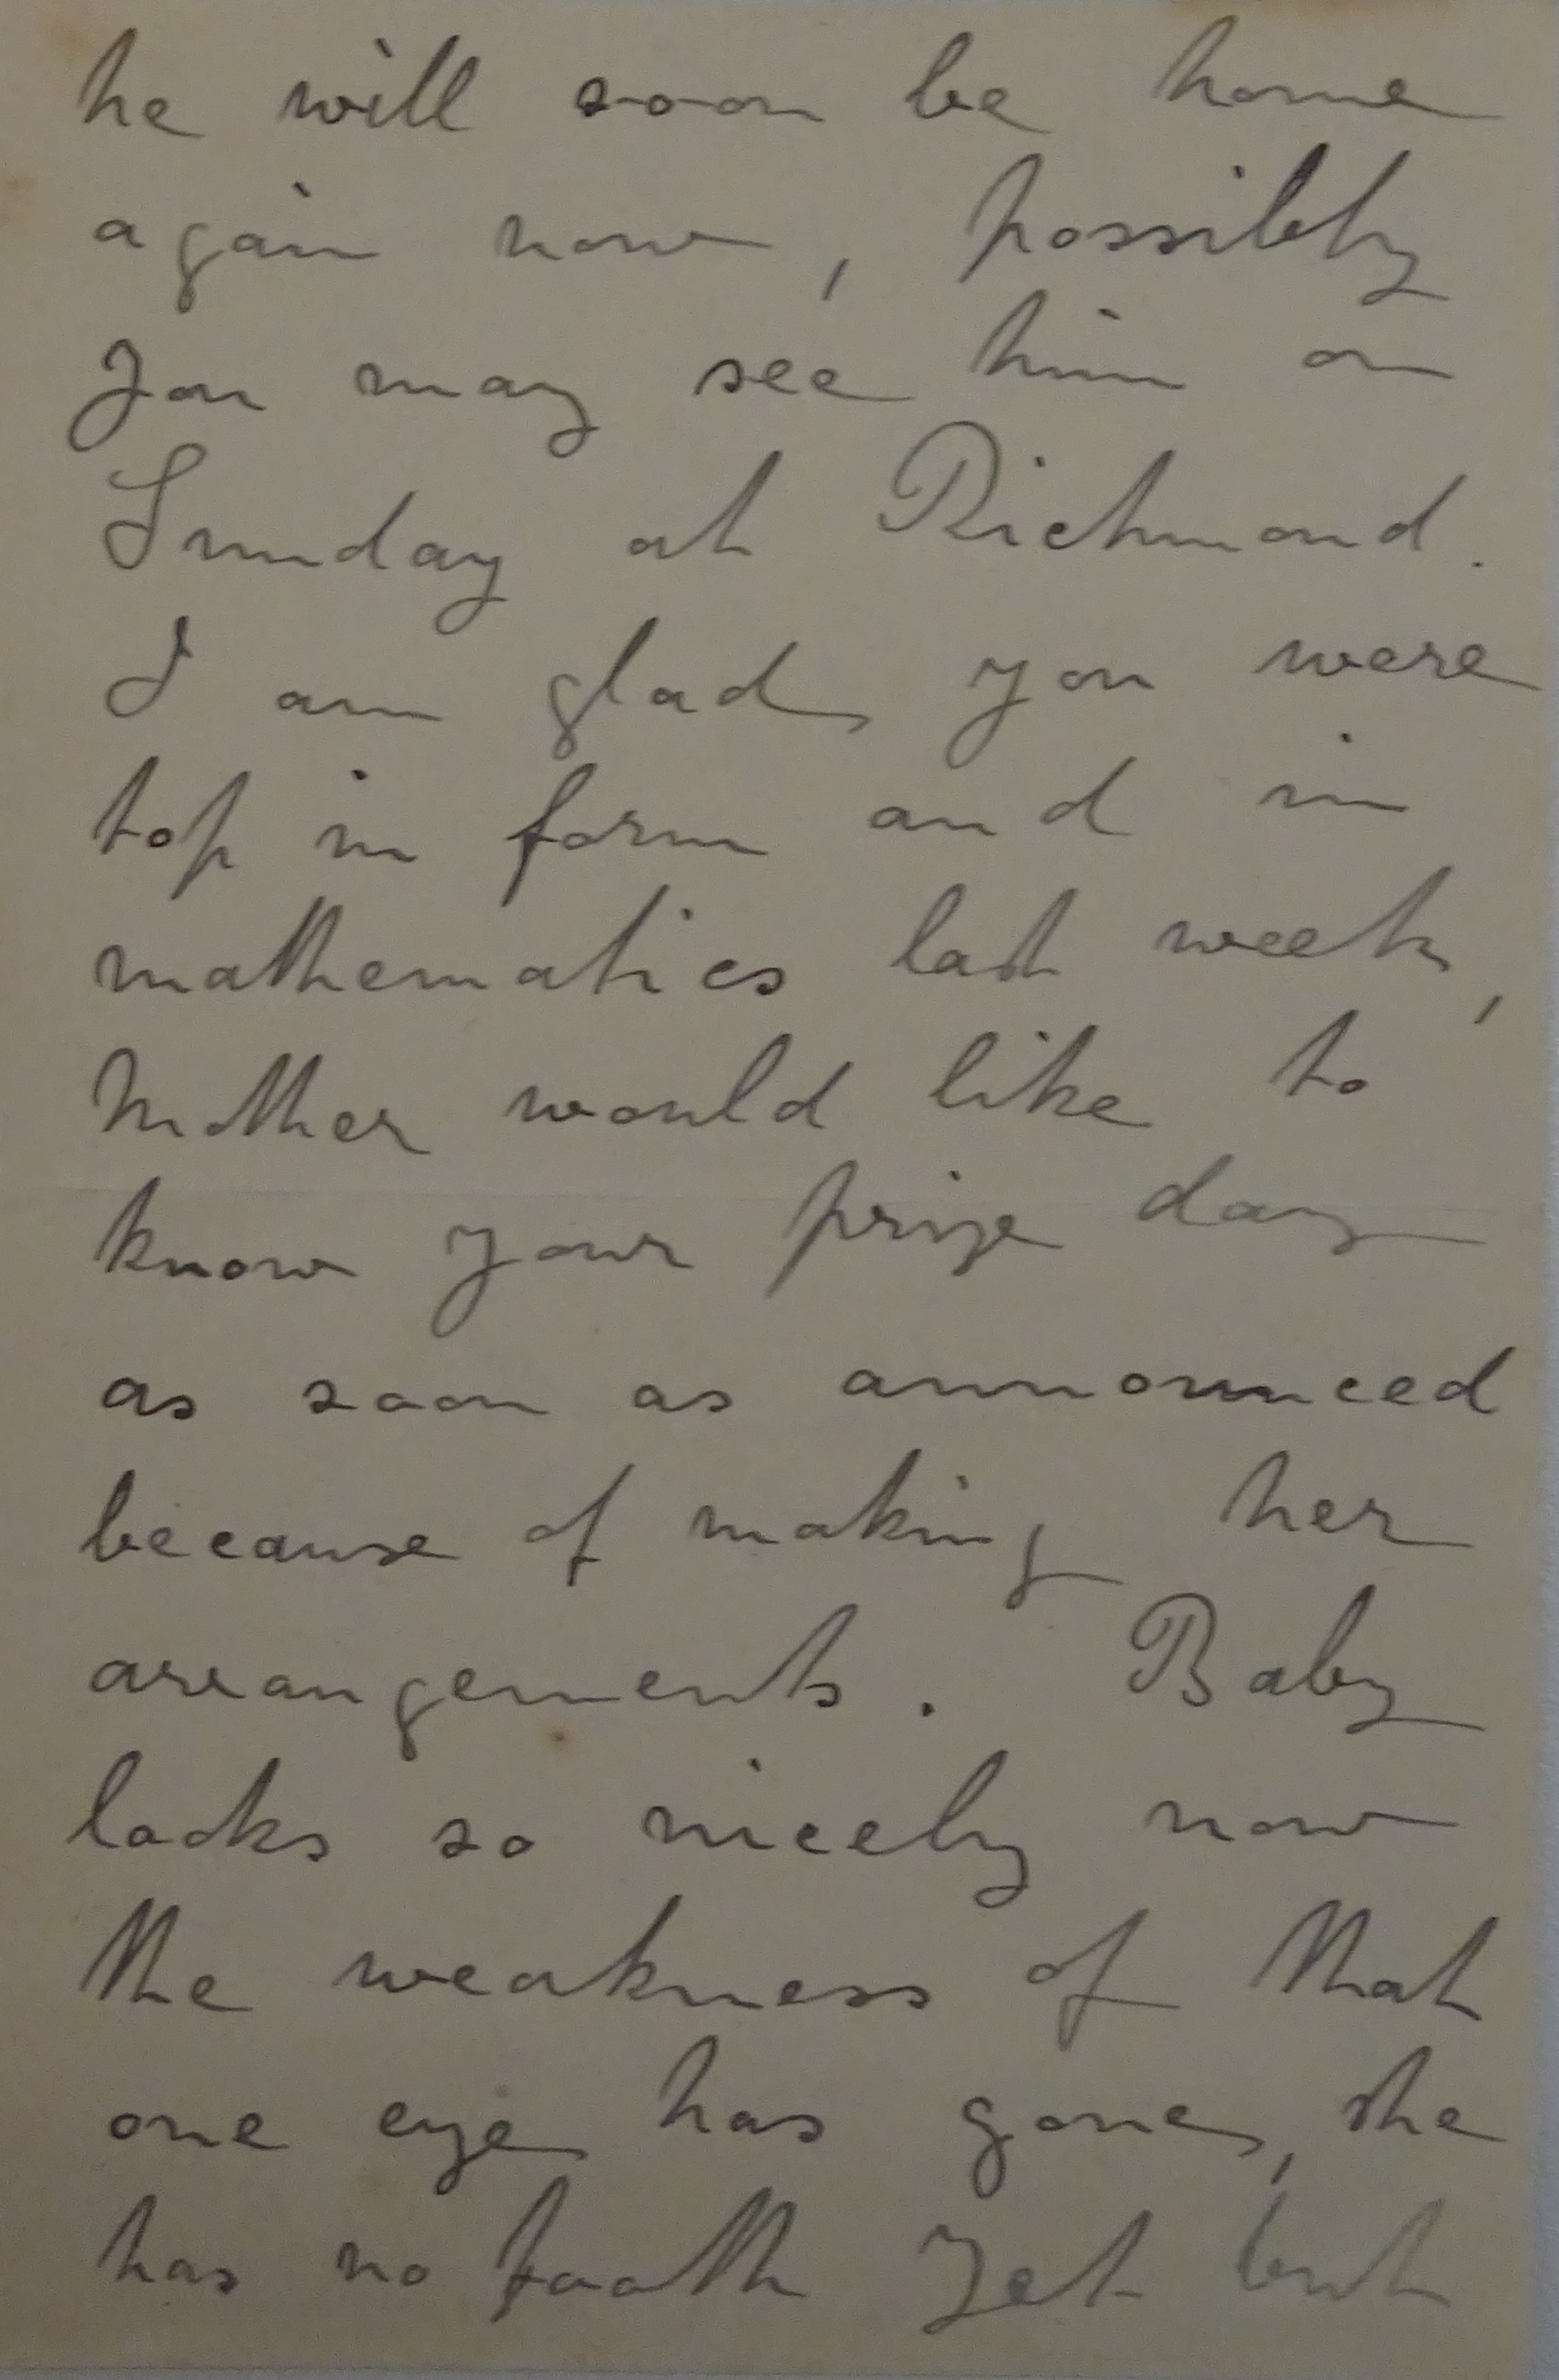 he will soon be home
again now, possibly
you may see him on
Sunday at Richmond.
I am glad you were
top in form and in
mathematics last week,
Mother would like to
know your prize day
as soon as announced
because of making her
arrangements. Baby
looks so nicely now
the weakness of that
one eye has gone, she
has no tooth yet but